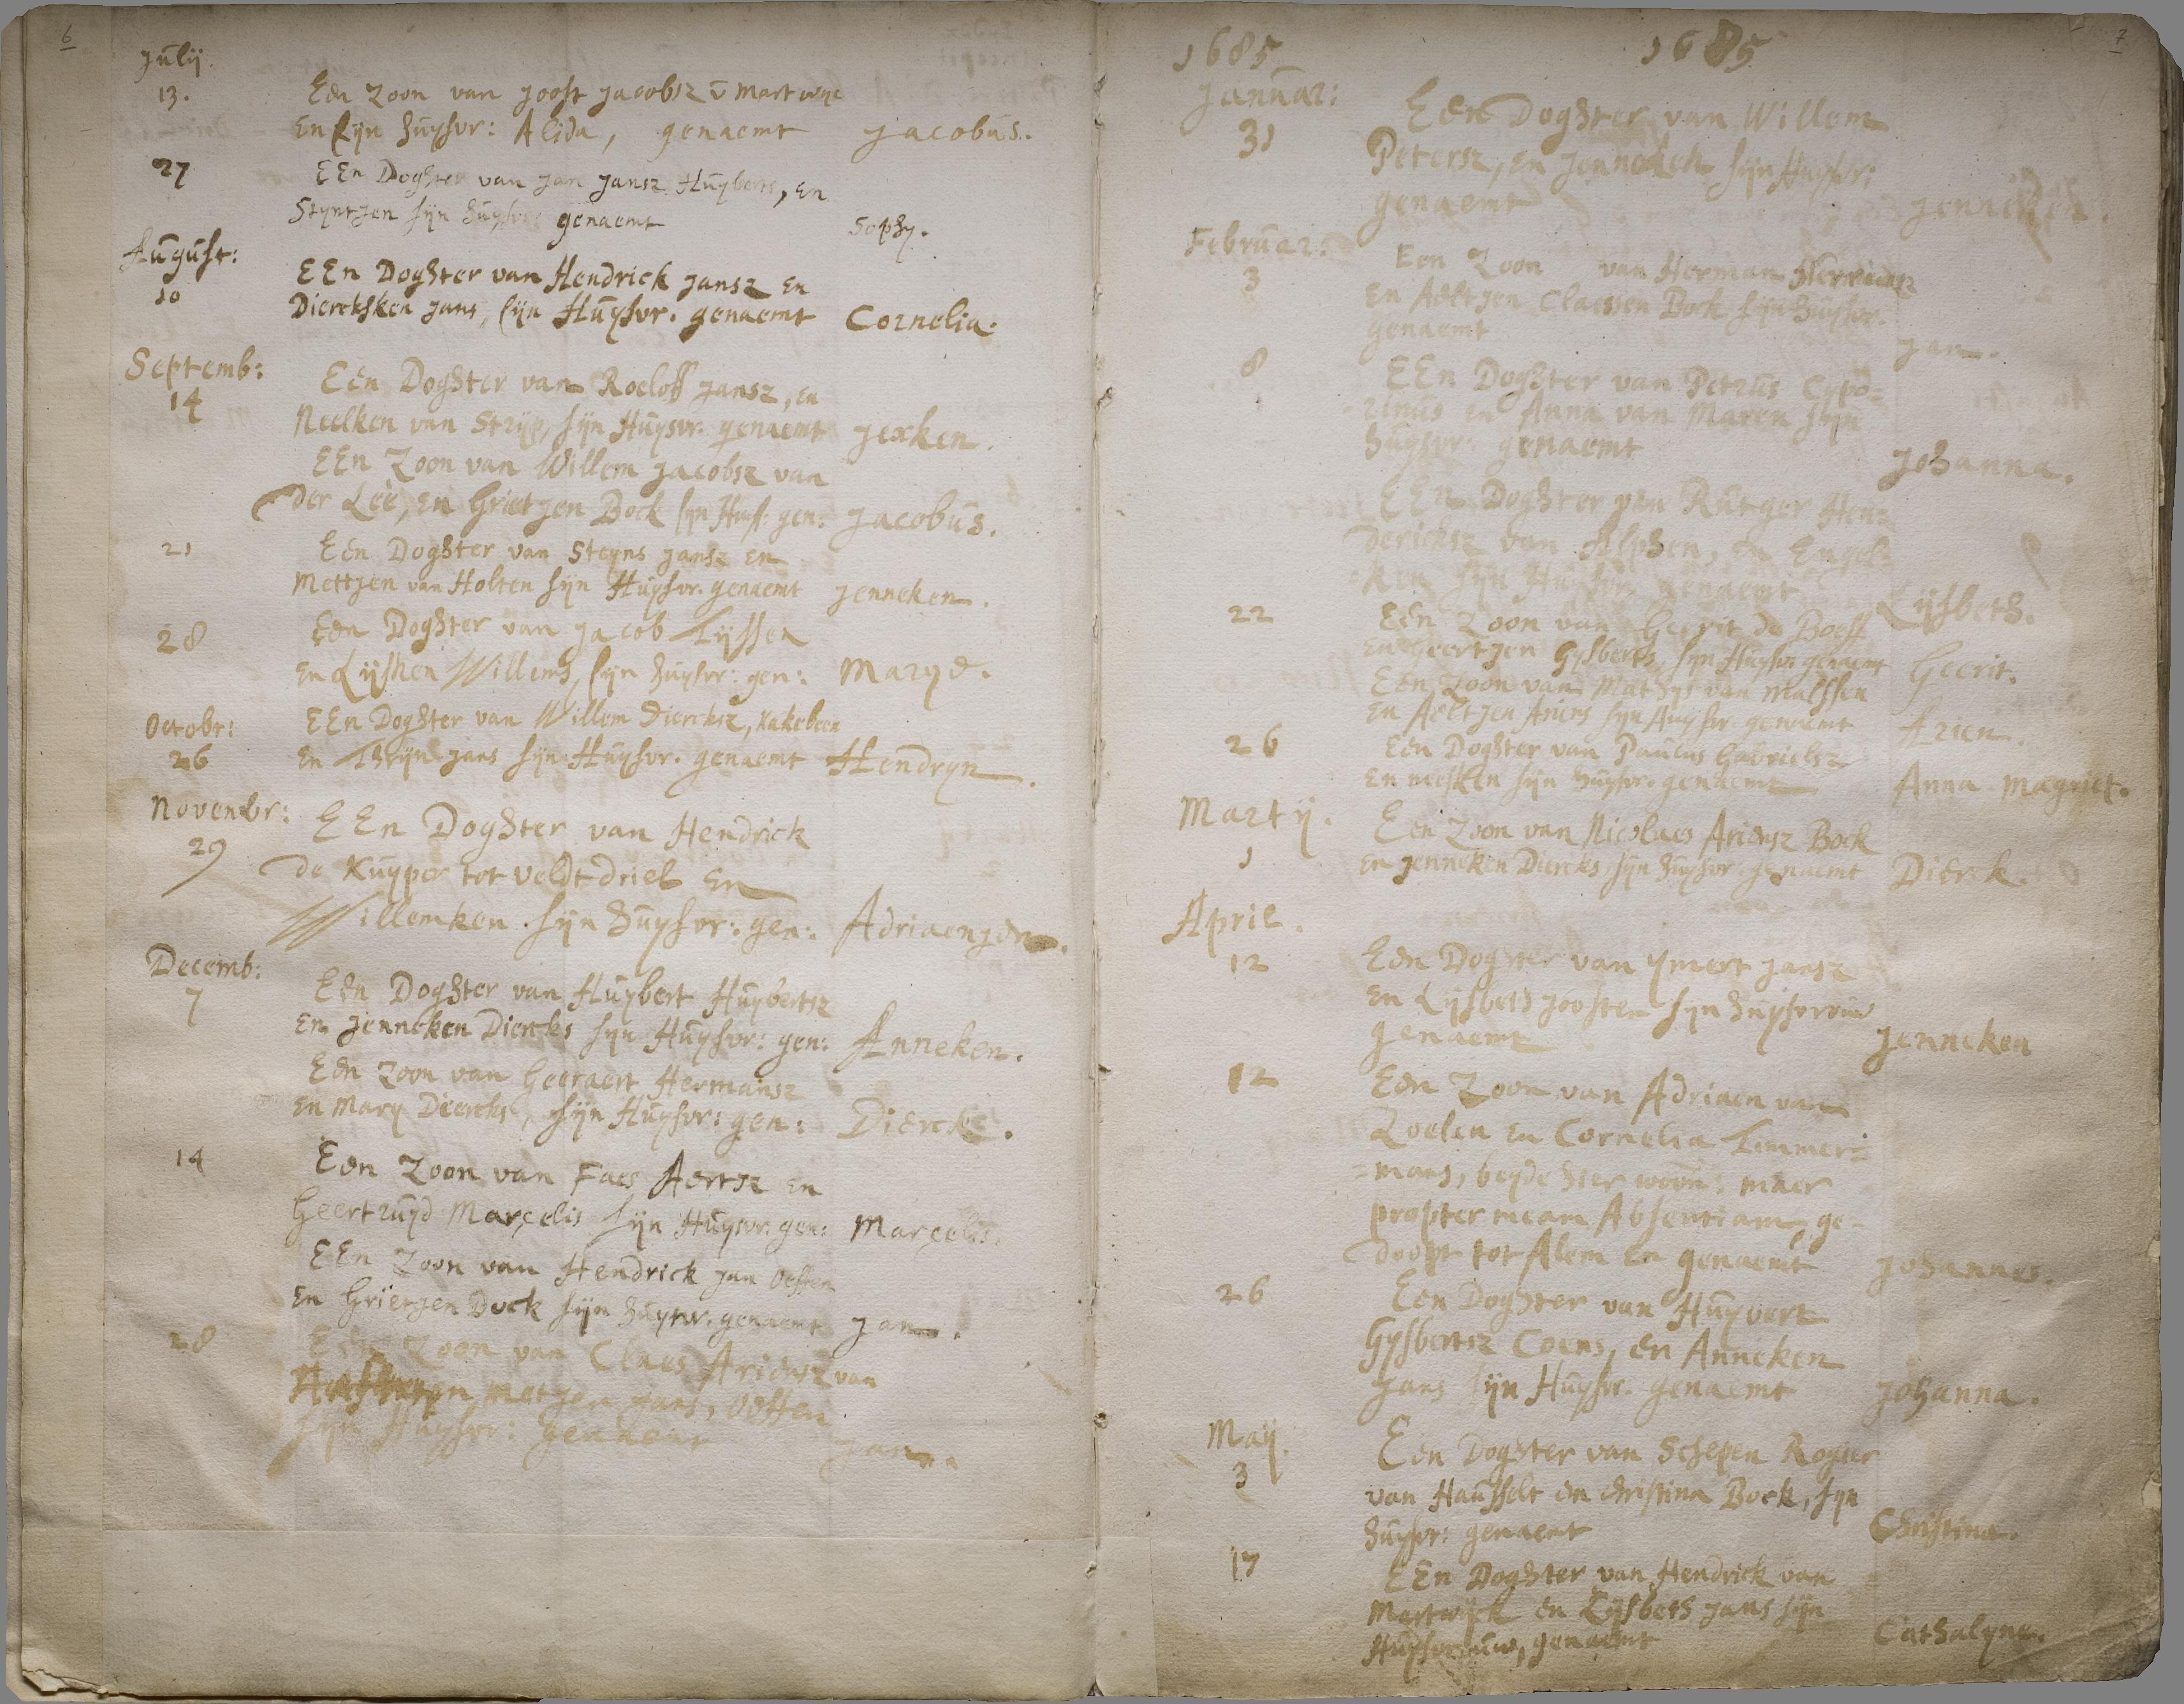 6
Julij.
13. Een Zoon van Joost Jacobsz v Martwijc
en sijn huysvr: Alida, genaemt Jacobus.
27 EEn Doghter van Jan Jansz Huyberts, en
Styntjen sijn huysvr: genaemt Sophy.
August:
10 EEn Doghter van Hendrick Jansz en
Dierckxken Jans, sijn Huysvr. genaemt Cornelia.
Septemb:
14 EEn Doghter van Roeloff Jansz, en
Neelken van Stryp, sijn Huysvr. genaemt Jexken.
EEn Zoon van Willem Jacobsz van
der Lee, en Grietjen Bock sijn Huys: gen: Jacobus.
21 Een Doghter van Steyns Jansz en
Mettjen van Holten sijn Huysvr. genaemt Jenneken.
28 Een Doghter van Jacob Tijssen
en Lijsken Willems, sijn huysvr: gen: Maryd.
Octobr:
26 EEn Doghter van Willem Diercksz, Kakebeen
en Thrijn Jans sijn Huysvr. genaemt Hendryn.
Novembr:
29 EEn Doghter van Hendrick
de Kuyper tot Veldtdriel en
Willemken sijn huysvr: gen: Adriaenjen.
Decemb:
7 Een Doghter van Huybert Huybertsz
en Jenneken Diercks sijn Huysvr: gen: Anneken.
Een Zoon van Geeraert Hermansz
en Mary Diercks, sijn Huysvr: gen: Diercke.
14 Een Zoon van Faes Aertsz en
Geertruyd Marcelis sijn Huysvr. gen: Marcelis.
EEn Zoon van Hendrick Jan Oeffen
en Grietjen Bock sijn huysvr. genaemt Jan.
28 Een Zoon van Claes Ariensz van
en Metjen Jans, Oeffen
sijn Huysvr: genaemt Jan.
7
1685 1685
Januar:
31 Een Doghter van Willem
Petersz, en Jenneken sijn Huysvr:
genaemt Jenneken.
Februar:
3 Een Zoon van Herman
en Aeltjen Claessen Bock sijn huysvr.
genaemt Jan.
8 EEn Doghter van Petrus Cypo=
rinus en Anna van Maren sijn
huysvr: genaemt Johanna.
EEn Doghter van Rutger Hen=
dericksz van Alphen, en Engel=
ken sijn Huysvr: genaemt Lijsbeth.
22 Een Zoon van Gerrit de Boeff
en Geertjen Gysberts, sijn Huysvr genaemt Geerit.
Een Zoon van Mathys van Malssen
en Aeltjen Ariens sijn Huysvr. genaemt Arien.
26 Een Doghter van Paulus Gabrielsz
en neesken sijn huysvr. genaemt Anna Magriet.
Martij.
1 Een Zoon van Nicolaes Ariensz Bock
en Jenneken Diercks sijn huysvr. genaemt Dierck.
April.
12 Een Doghter van Ymert Jansz
en Lijsbeth Joosten sijn huysvrouw
genaemt Jenneken
12 Een Zoon van Adriaen van
Zoelen en Cornelia Timmer=
=mans, beyde hier woon: maer
propter meam Absentiam, ge-
doopt tot Alem en genaemt Johannes.
26 Een Doghter van Huyvert
Gysbertsz Coens, en Anneken
Jans sijn Huysvr. genaemt Johanna.
May.
3 Een Doghter van Schepen Rogier
van Hausselt en Christina Bock, sijn
huysvr: genaemt Christina.
17 EEn Doghter van Hendrick van
Martwijck en Lijsbeth Jans sijn
Huysvrouw, genaemt Cathalyne.